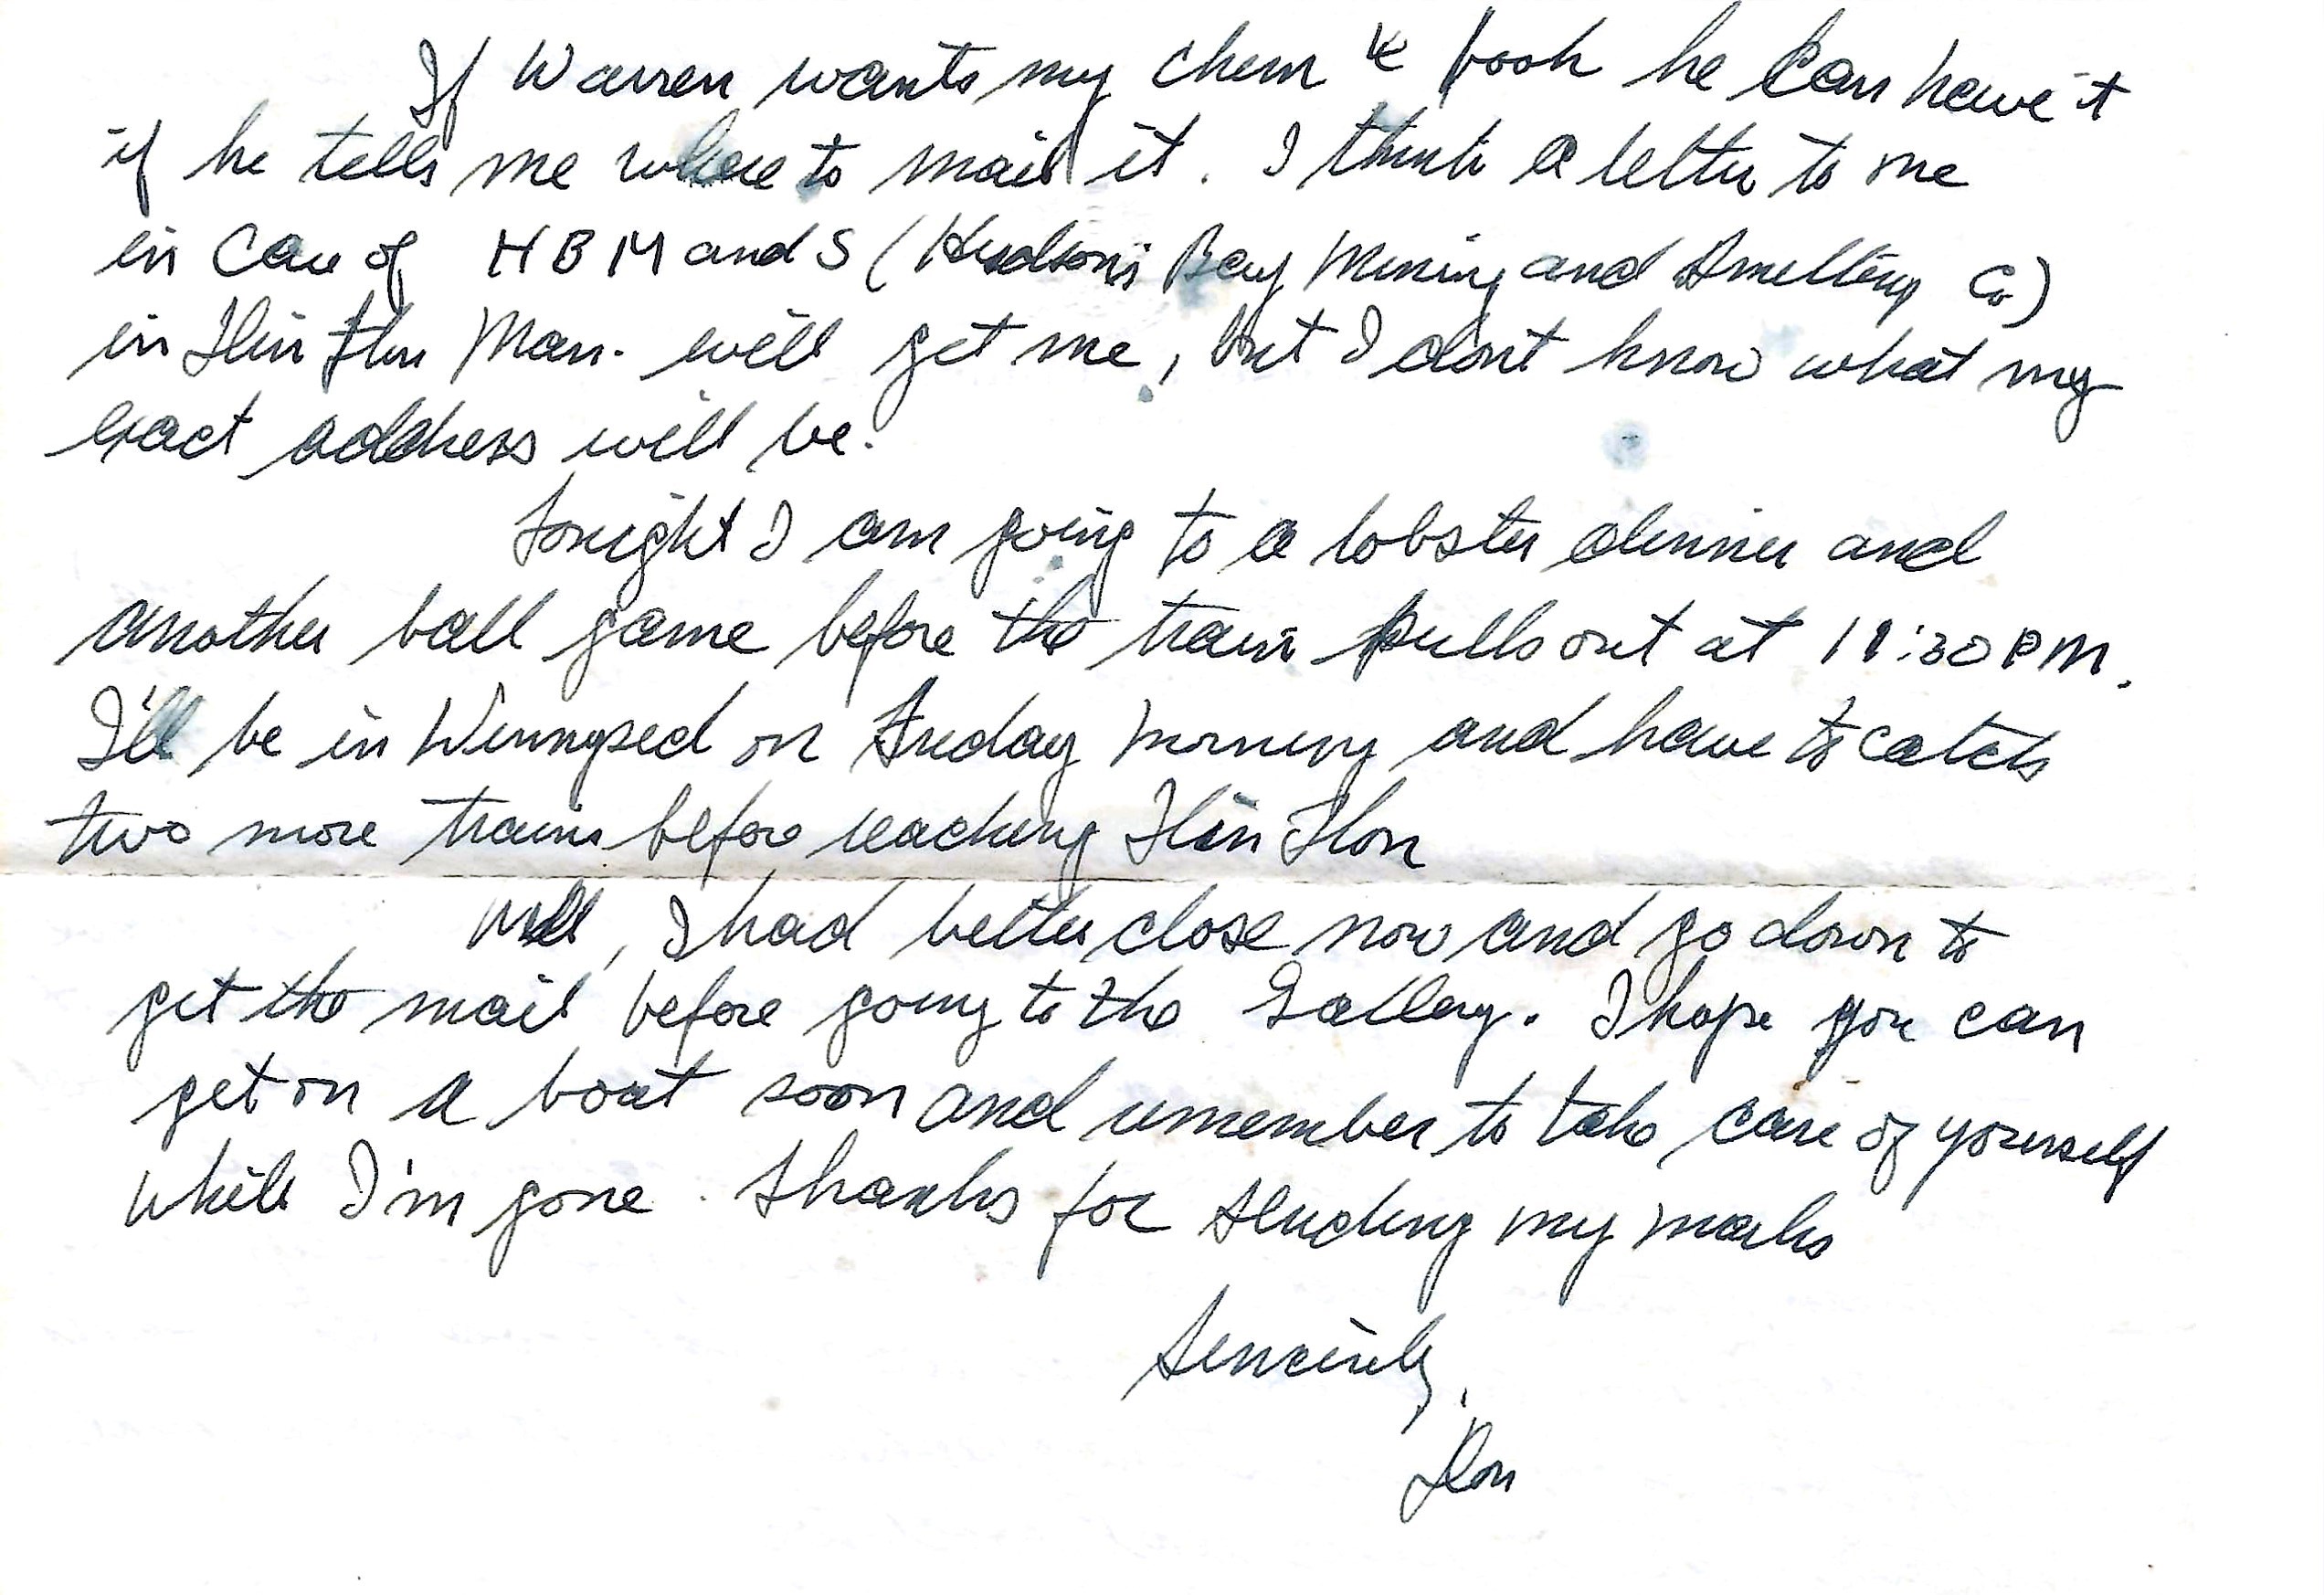 If Warren wants my chem book he can have it
if he tells me where to mail it. I think a letter to me
in care of HBM and S (Hudson's Bay Mining and Smelting Co)
in Flin Flon Man. will get me, but I dont know what my
exact address will be.
Tonight I am going to a lobster dinner and
another ball game before the train pulls out at 11:30 PM.
I'll be in on morning and have to catch
two more trains before reaching Flin Flon
Well, I had better close now and go down to
get the mail before going to the Gallery. I hope you can
get on a boat soon and remember to take care of yourself
while I'm gone. Thanks for sending my marks
Sincerely,
Don